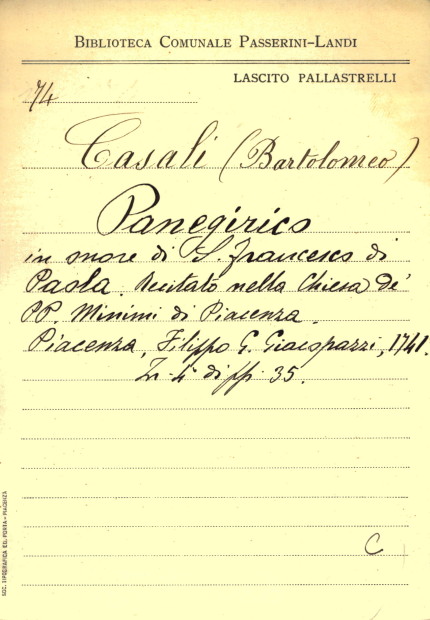 BIBLIOTECA COMUNALE PASSERINI-LANDI
LASCITO PALLASTRELLI
74
Casali (Bartolomeo)
Panegirico
in onore di S. Francesco di
Paola. Recitato nella Chiesa de'
PP. Minimi di Piacenza.
Piacenza, Filippo G. Giacopazzi, 1741.
In-4° di pp. 35.
C
SOC. TIPOGRAFICA ED. PORTA - PIACENZA